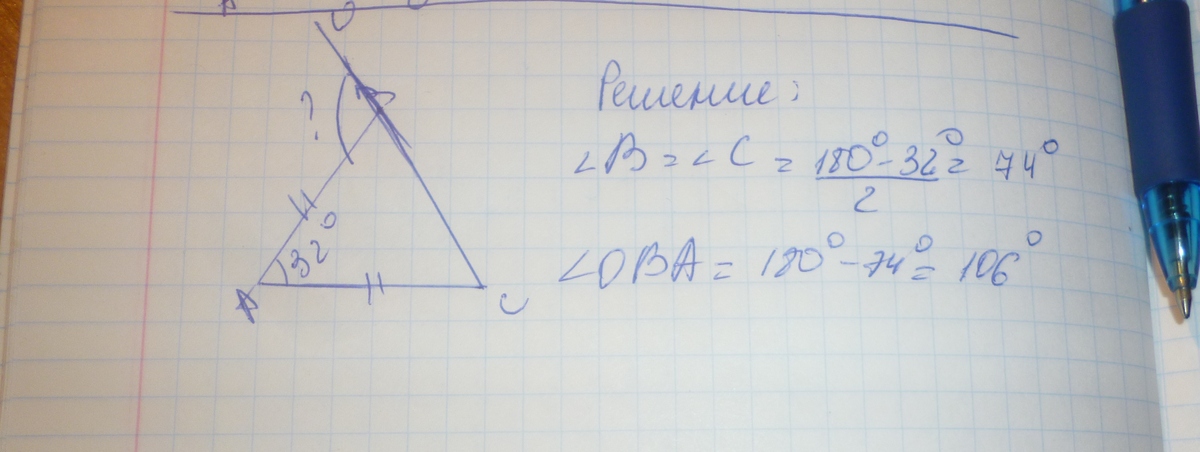 O
B
?
32°
A
C
Решение:
∠B = ∠C = (180° - 32°)/2 = 74°
∠OBA = 180° - 74° = 106°